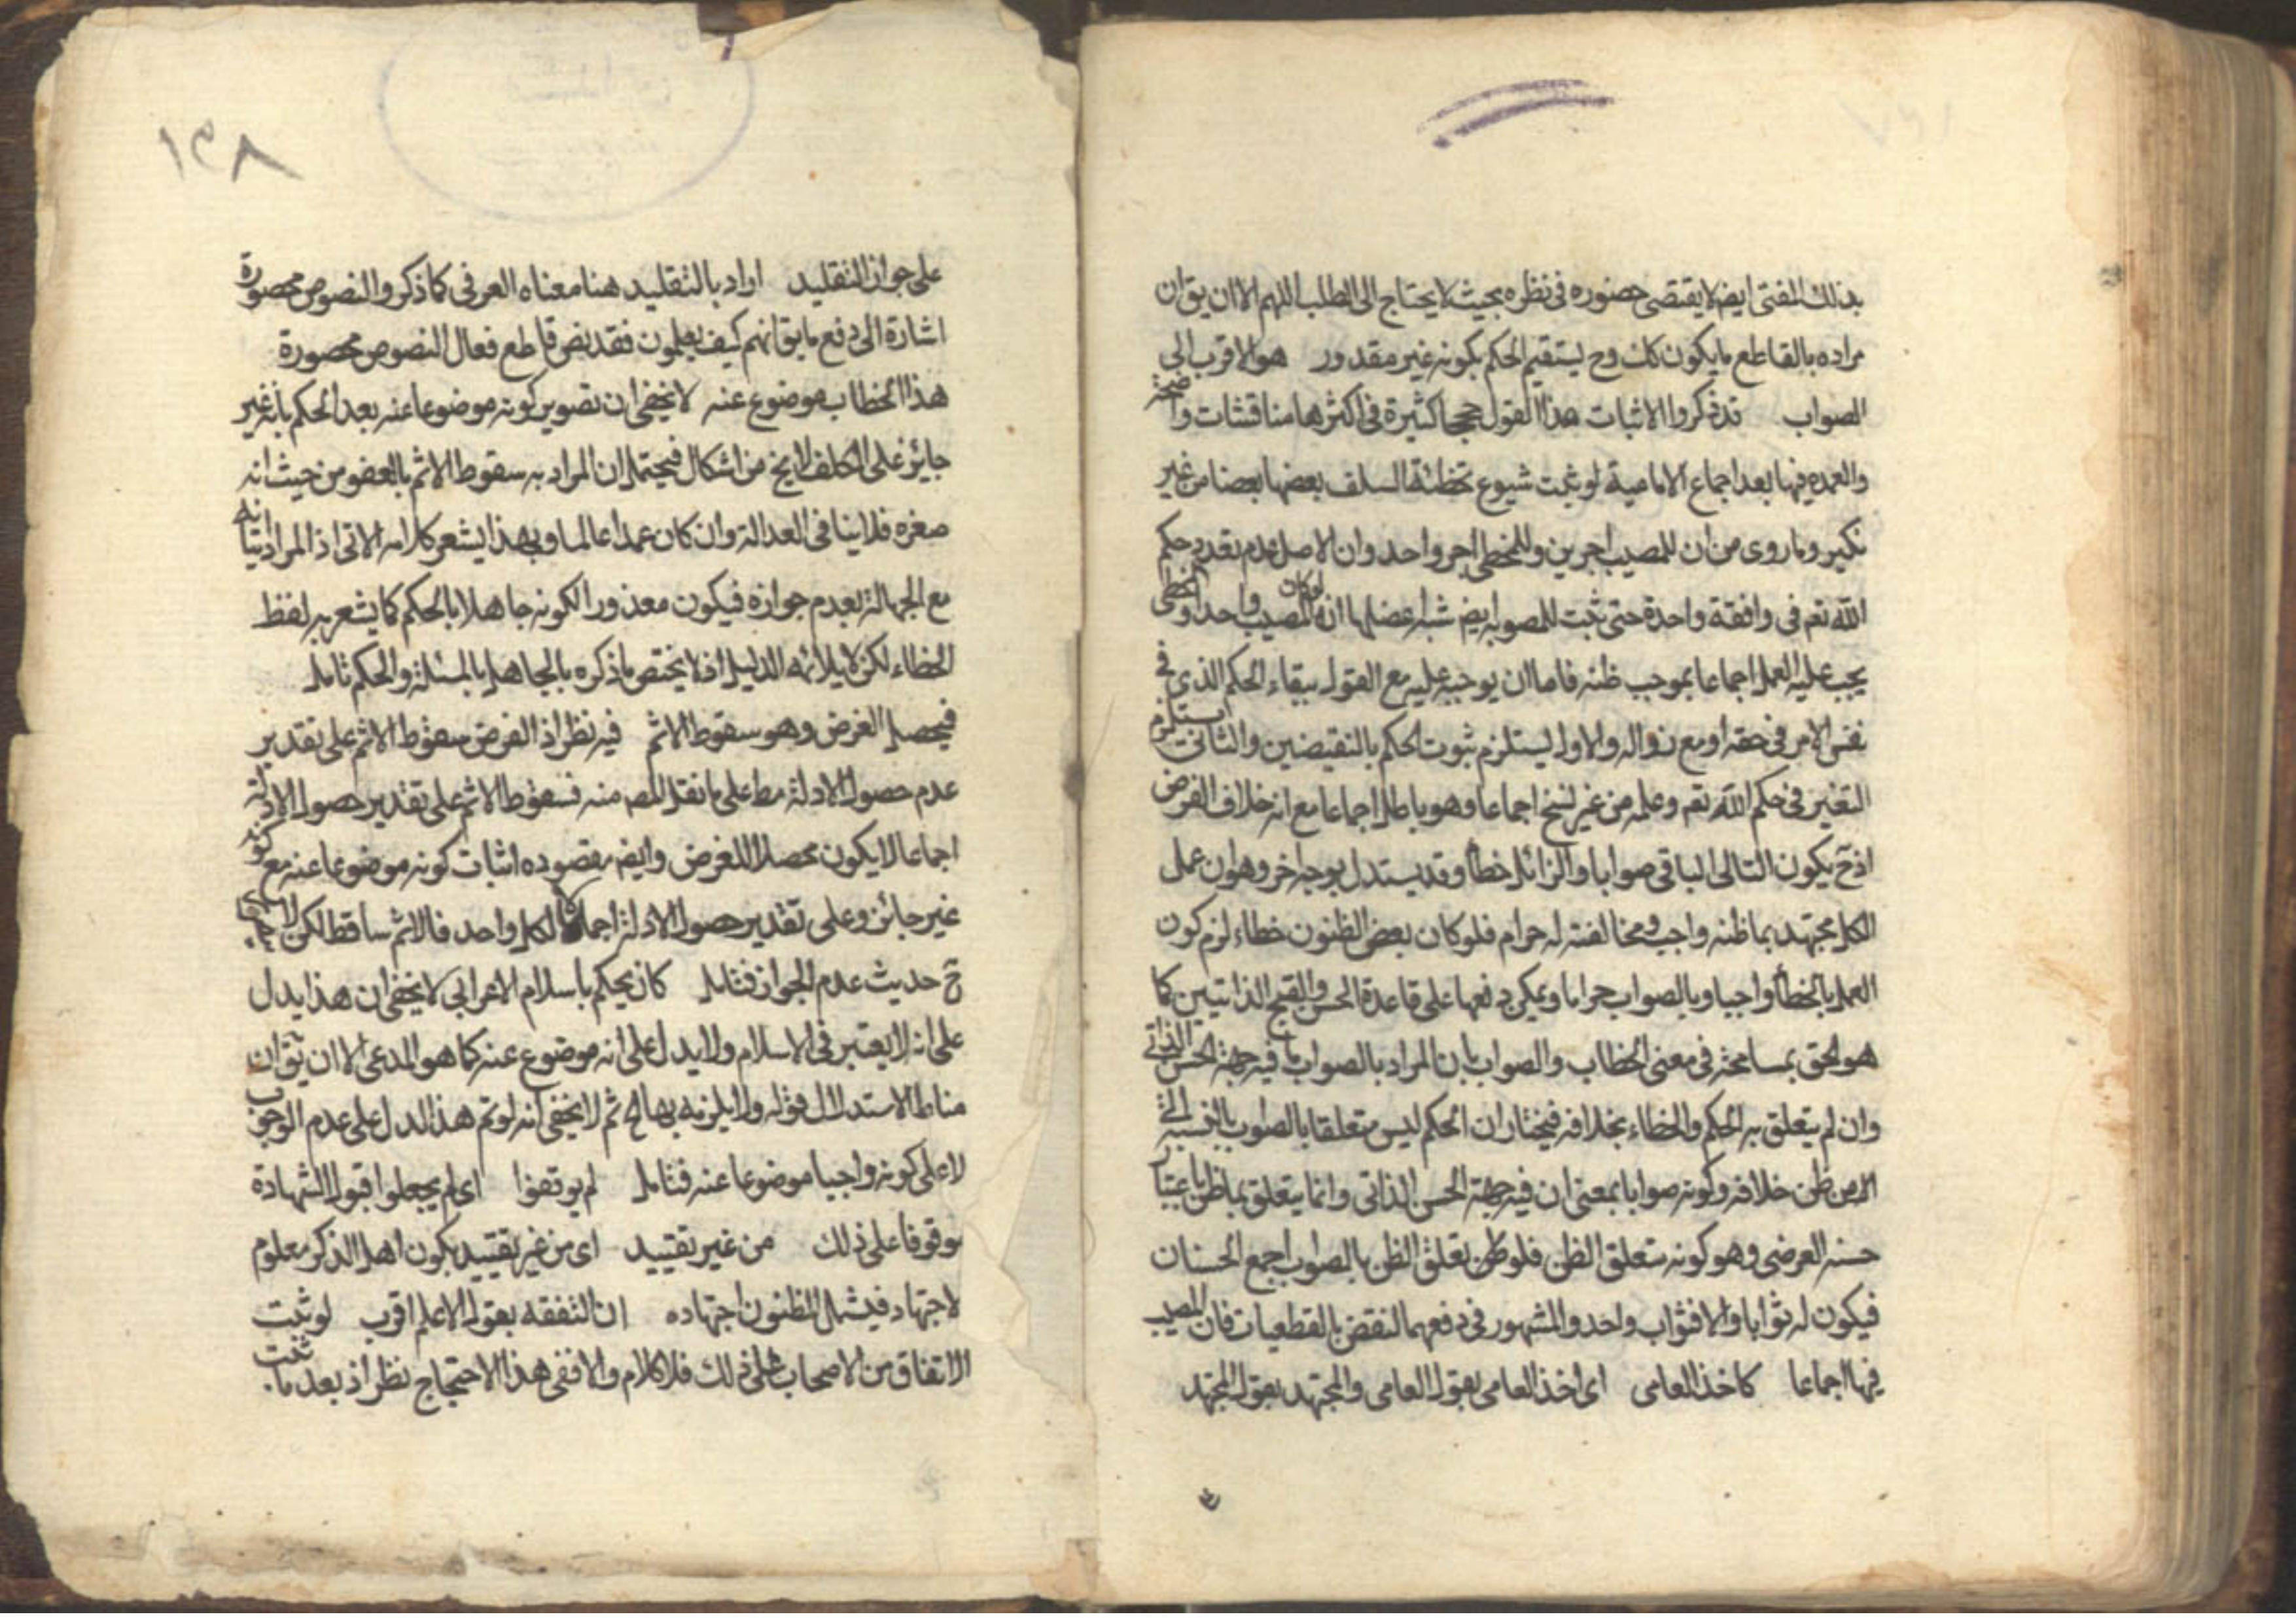 بذلك المفتى ايضا لا يقتضى حضوره فى نظره بحيث لا يحتاج الى الطلب اللهم الا ان يق ان
مراده بالقاطع ما يكون كك وح ليستقيم الحكم بكونه غير مقدور هو الاقرب الى
الصواب قد ذكروا لاثبات هذا القول حججا كثيرة فى اكثرها مناقشات واضحة
والعمده فيها بعد اجماع الامامية لو ثبت شيوع تخطئة السلف بعضها بعضا من غير
نكير وما روى من ان للمصيب اجرين وللمخطى اجر واحد وان الاصل عدم تعدد حكم
الله تعم فى واقعة واحدة حتى يثبت للمصوبه ايض شبه اعضلها انه لو كان المصيب واحدا والمخطى
يجب عليه العمل اجماعا بموجب ظنه فاما ان يوجبه عليه مع القول ببقاء الحكم الذى فى
نفس الامر فى حقه او مع زواله والاول يستلزم ثبوت الحكم بالنقيضين والثانى يستلزم
التغير فى حكم الله تعم وعلمه من غير نسخ اجماعا وهو باطل اجماعا مع انه خلاف الفرض
اذ ح يكون التالى الباقى صوابا والزائل خطأ وقد يستدل بوجه اخر وهو ان عمل
الكل مجتهد بما ظنه واجب ومخالفته له حرام فلو كان بعض الظنون خطاء لزم كون
العمل بالخطأ واجبا وبالصواب حراما ويمكن دفعها على قاعدة الحسن والقبح الذاتيين كما
هو الحق بمسامحة فى معنى الخطاب والصواب بان المراد بالصواب ما فيه جهة الحسن الذاتى
وان لم يتعلق به الحكم والخطاء بخلافه فيختار ان الحكم ليس متعلقا بالصواب بالنسبة الى
الامن ظن خلافه وكونه صوابا بمعنى ان فيه جهة الحسن الذاتى وانما يتعلق بما ظن باعتبار
حسنه العرضى وهو كونه متعلق الظن فلو ظن تعلق الظن بالصواب اجمع الحسنان
فيكون له ثوابا والا فثواب واحد والمشهور فى دفعهما النقض بالقطعيات فان المصيب
فيها اجماعا كاخذ العامى اى اخذ العامى بقول العامى والمجتهد بقول المجتهد
١٣٨
على جواز التقليد اراد بالتقليد هنا معناه العرفى كما ذكر والنصوص محصورة
اشارة الى دفع ما يق انهم كيف يعلمون فقد نص قاطع فقال النصوص محصورة
هذا الخطاب موضوع عنه لا يخفى ان تصوير كونه موضوعا عنه بعد الحكم بانه غير
جائز على المكلف لا يخ من اشكال فيحتمل ان المراد به سقوط الاثم بالعفو من حيث انه
صغره فلا ينافى العدالة وان كان عمدا عالما وبهذا يشعر كلامه الاتى اذ المراد
مع الجهالة بعدم جوازه فيكون معذورا لكونه جاهلا بالحكم كما يشعر به لفظ
الخطاء لكن لا يلائمه الدليل اذ لا يختص ما ذكره بالجاهل بالمسئلة والحكم تامل
فيحصل الغرض وهو سقوط الاثم فيه نظر اذ الفرض سقوط الاثم على تقدير
عدم حصول الادلة مط على ما نقل المص منه فسقوط الاثم على تقدير حصول الادلة
اجمالا لا يكون محصلا للغرض وايض مقصوده اثبات كونه موضوعا عنه مع كونه
غير جائز وعلى تقدير حصول الادلة اجمالا لكل واحد فالاثم ساقط لكن لا
ح حديث عدم الجواز فتامل كان يحكم باسلام الاعرابى لا يخفى ان هذا يدل
على انه لا يعتبر فى الاسلام ولا يدل على انه موضوع عنه كما هو المدعى الا ان يق ان
مناط الاستدلال قوله ولا يلزمه بها الخ ثم لا يخفى انه لو تم هذا لدل على عدم الوجوب
لا على كونه واجبا موضوعا عنه فتامل لم يوقفوا اى لم يجعلوا قبول الشهادة
موقوفا على ذلك من غير تقييد اى من غير تقييد بكون اهل الذكر معلوم
لاجتهاد فيشمل المظنون اجتهاده ان التفقه بقول الاعلم اقرب لو ثبت
الاتفاق من الاصحاب على ذلك فلا كلام والا ففى هذا الاحتجاج نظر اذ بعد ما ثبت